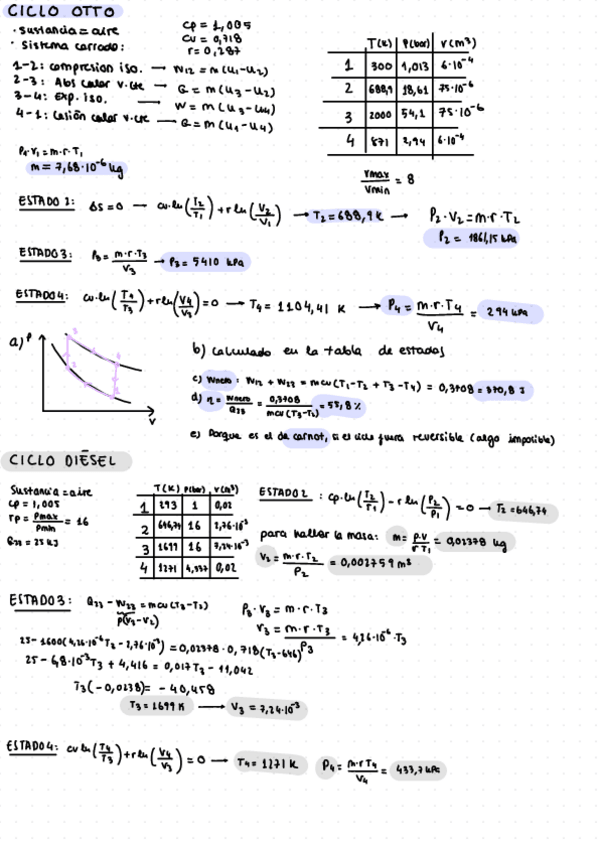 CICLO OTTO
· sustancia = aire
· sistema cerrado:
cp = 1,005
cv = 0,718
r = 0,287
1-2: compresion iso. → W12 = m(u1-u2)
2-3: Abs calor v.cte → Q = m(u3-u2)
3-4: Exp. iso. → W = m(u3-u4)
4-1: Cesión calor v.cte → Q = m(u1-u4)
T(K) P(bar) V(m³)
1 300 1,013 6·10⁻⁴
2 688,9 18,61 75·10⁻⁶
3 2000 54,1 75·10⁻⁶
4 871 2,94 6·10⁻⁴
Vmax/Vmin = 8
P1·V1 = m·r·T1
m = 7,68·10⁻⁶ kg
ESTADO 2: ΔS=0 → cv·ln(T2/T1) + r ln(V2/V1) → T2 = 688,9 K → P2·V2 = m·r·T2
P2 = 1861,15 kPa
ESTADO 3: P3 = m·r·T3/V3 → P3 = 5410 kPa
ESTADO 4: cv·ln(T4/T3) + r ln(V4/V3) = 0 → T4 = 1104,41 K → P4 = m·r·T4/V4 = 294 kPa
a) P
V
b) calculado en la tabla de estados
c) Wneto: W12 + W23 = mcv(T1-T2 + T3-T4) = 0,3708 = 370,8 J
d) η = Wneto/Q23 = 0,3708/mcv(T3-T2) = 55,8 %
e) Porque es el de carnot, si el ciclo fuera reversible (algo imposible)
CICLO DIÉSEL
Sustancia = aire
cp = 1,005
rp = Pmax/Pmin = 16
Q23 = 25 kJ
T(K) P(bar) V(m³)
1 293 1 0,02
2 646,74 16 2,76·10⁻³
3 1699 16 7,24·10⁻³
4 1271 4,337 0,02
ESTADO 2: cp·ln(T2/T1) - r ln(P2/P1) = 0 → T2 = 646,74
para hallar la masa: m = P·V/r T1 = 0,02378 kg
V2 = m·r·T2/P2 = 0,002759 m³
ESTADO 3: Q23 - W23 = mcv(T3-T2)
P(V3-V2)
P3·V3 = m·r·T3
V3 = m·r·T3/P3 = 4,26·10⁻⁶·T3
25-1600(4,26·10⁻⁶T3 - 2,76·10⁻³) = 0,02378·0,718(T3-646)
25 - 6,8·10⁻³T3 + 4,416 = 0,017T3 - 11,042
T3(-0,0238) = -40,458
T3 = 1699 K → V3 = 7,24·10⁻³
ESTADO 4: cv ln(T4/T3) + r ln(V4/V3) = 0 → T4 = 1271 K P4 = m·r T4/V4 = 433,7 kPa